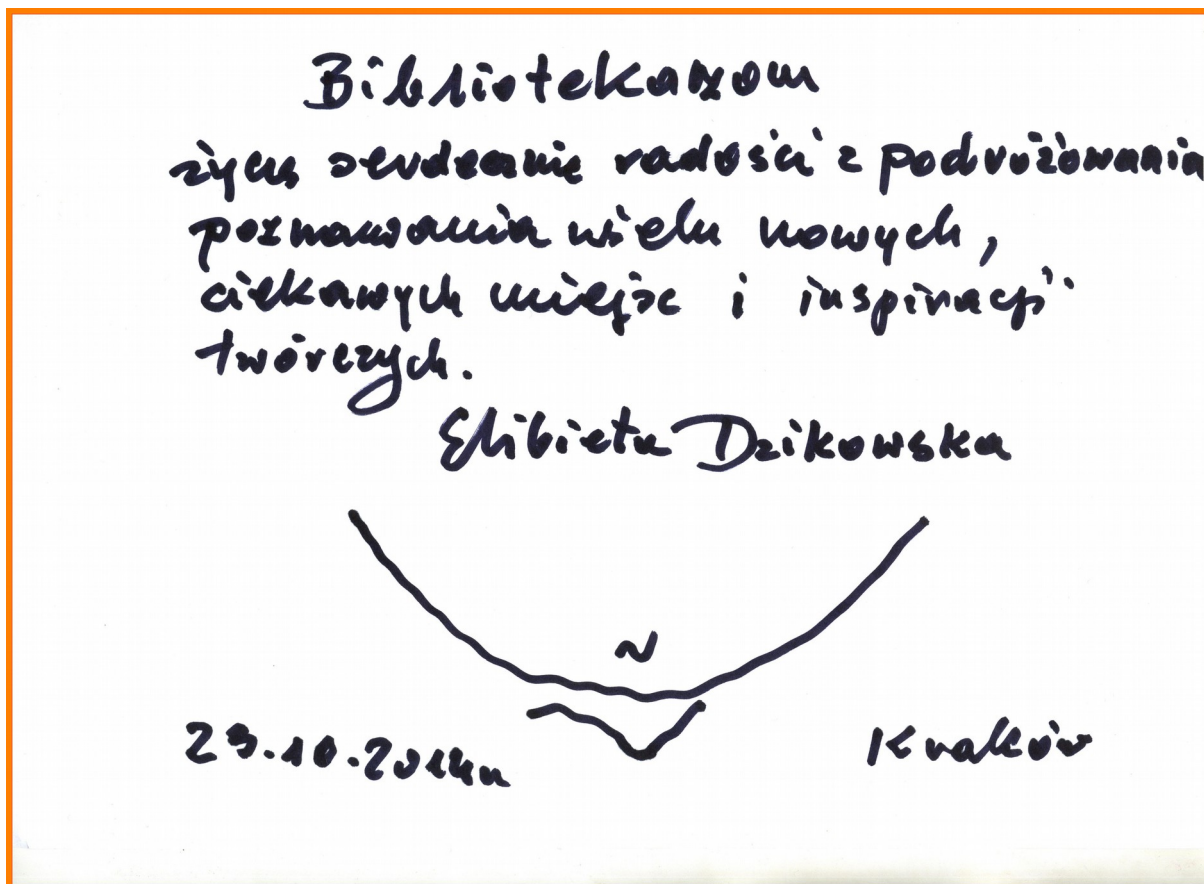 Bibliotekarzom
życzę serdecznie radości z podróżowania
poznawania wielu nowych,
ciekawych miejsc i inspiracji
twórczych.
Elżbieta Dzikowska
N
23.10.2014r
Kraków